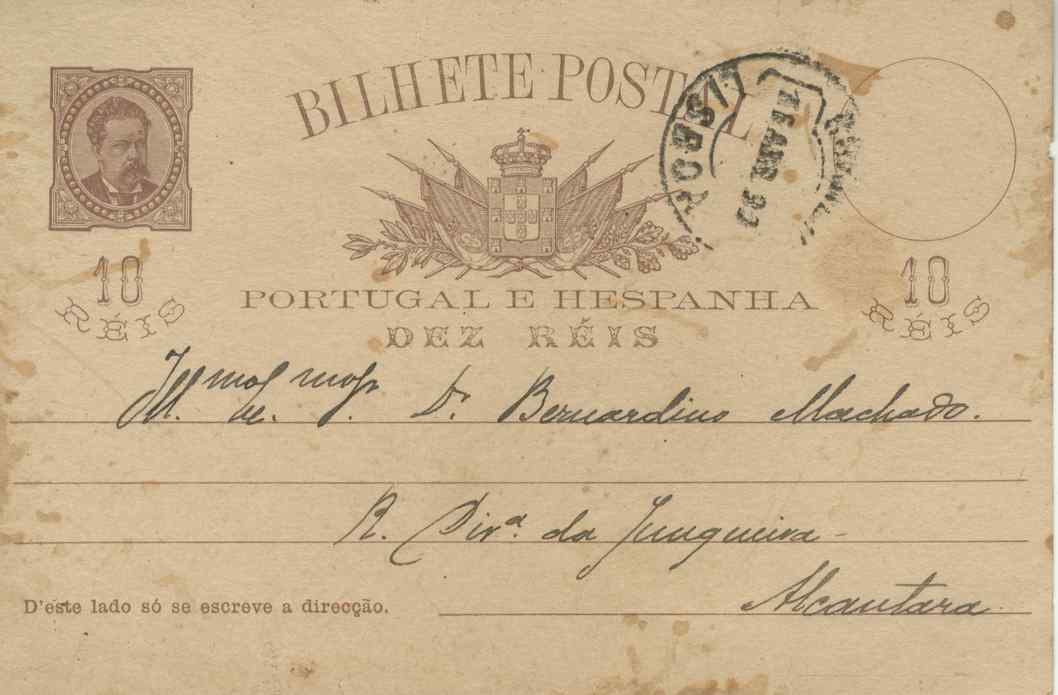 BILHETE POSTAL
LISBOA
10
RÉIS
PORTUGAL E HESPANHA
DEZ RÉIS
10
RÉIS
Dr. Bernardino Machado.
R. Dirª. da Junqueira -
Alcantara
D'este lado só se escreve a direcção.